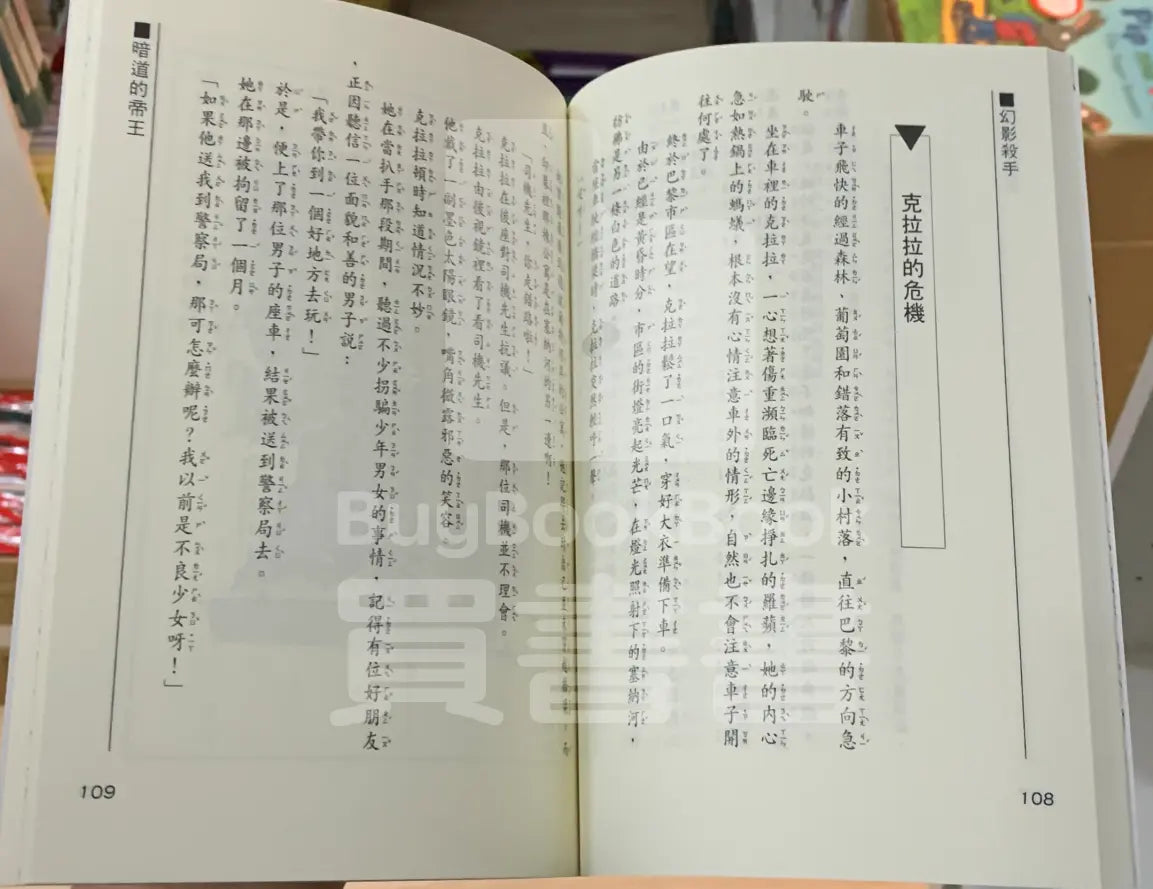 ■幻影殺手
克拉拉的危機
車子飛快的經過森林、葡萄園和錯落有致的小村落，直往巴黎的方向急
駛。
坐在車裡的克拉拉，一心想著傷重瀕臨死亡邊緣掙扎的羅蘋，她的內心
急如熱鍋上的螞蟻，根本沒有心情注意車外的情形，自然也不會注意車子開
往何處了。
終於巴黎市區在望，克拉拉鬆了一口氣，穿好大衣準備下車。
由於已經是黃昏時分，市區的街燈亮起光芒，在燈光照射下的塞納河，
彷彿是另一條白色的道路。
108
■暗道的帝王
「司機先生，你走錯路啦！」
克拉拉在後座對司機先生抗議。但是，那位司機並不理會。
克拉拉由後視鏡裡看了看司機先生。
他戴了一副墨色太陽眼鏡，嘴角微露邪惡的笑容。
克拉拉頓時知道情況不妙。
她在當扒手那段期間，聽過不少拐騙少年男女的事情，記得有位好朋友
，正因聽信一位面貌和善的男子說：
「我帶你到一個好地方去玩！」
於是，便上了那位男子的座車，結果被送到警察局去。
她在那邊被拘留了一個月。
「如果他送我到警察局，那可怎麼辦呢？我以前是不良少女呀！」
109
BuyBookBook
買書書